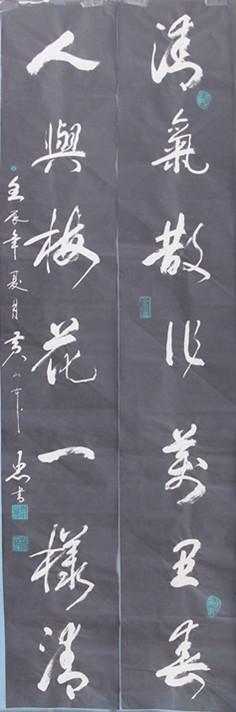 清氣散作萬里春
人與梅花一樣清
壬辰年夏月黄山
書